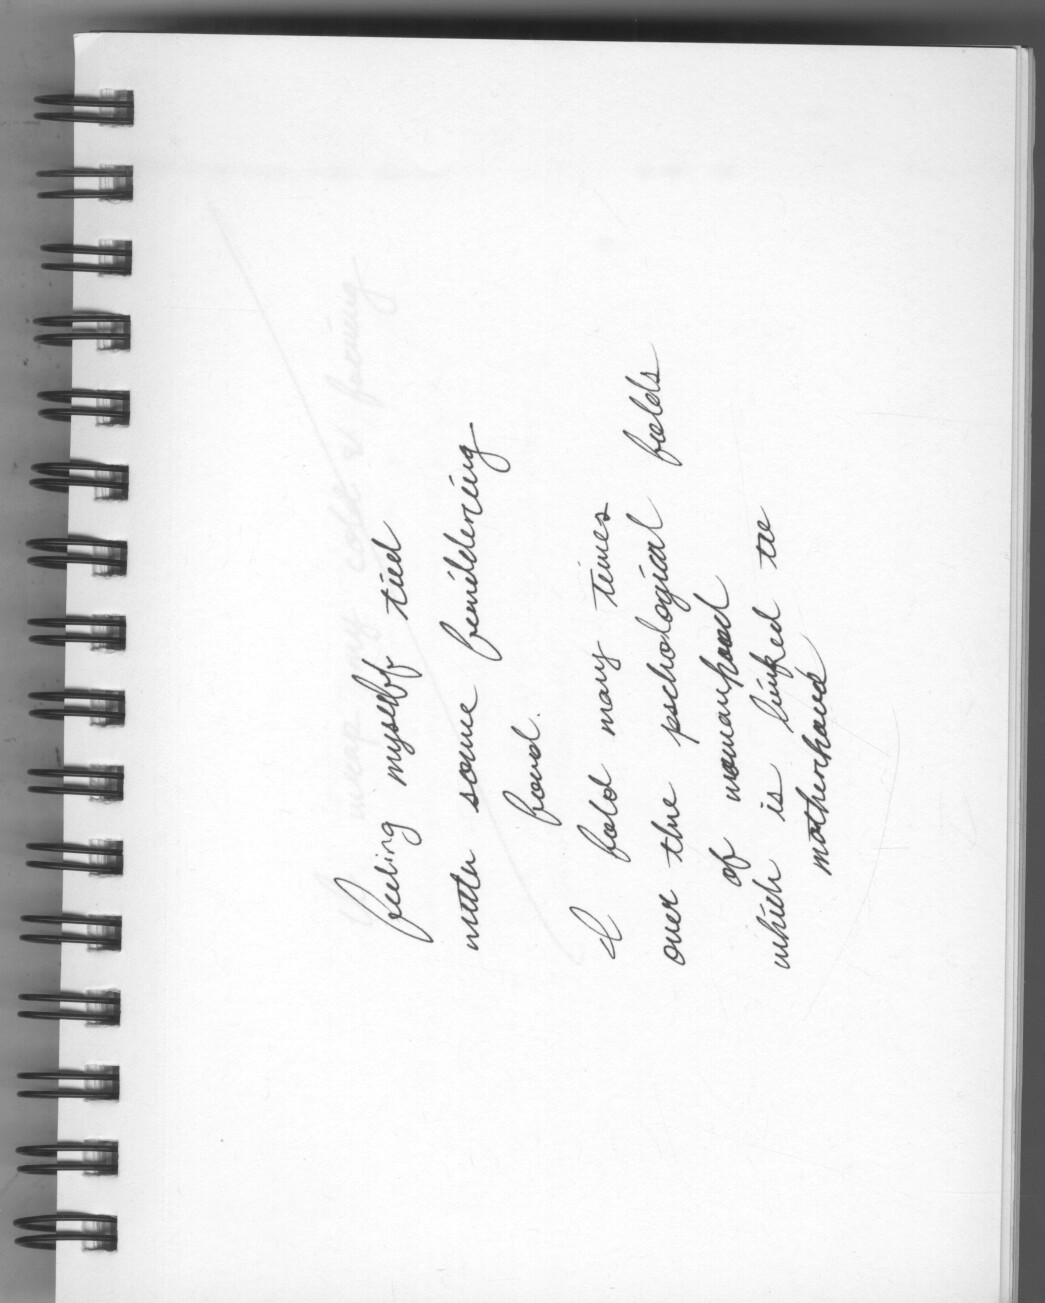 feeling myself tied
with some bewildering
bond.
I fold many times
over the pschological folds
of womanhood
which is linked to
motherhood